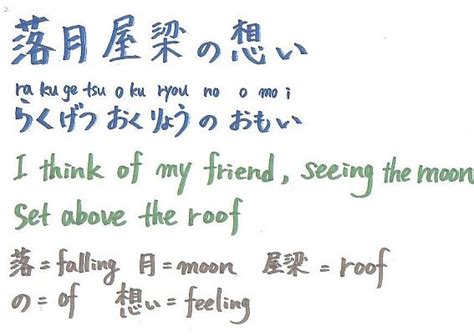 落月屋梁の想い
ra ku ge tsu o ku ryou no o mo i
らくげつ おくりょう の おもい
I think of my friend, seeing the moon
Set above the roof
落 = falling 月 = moon 屋梁 = roof
の = of 想い = feeling